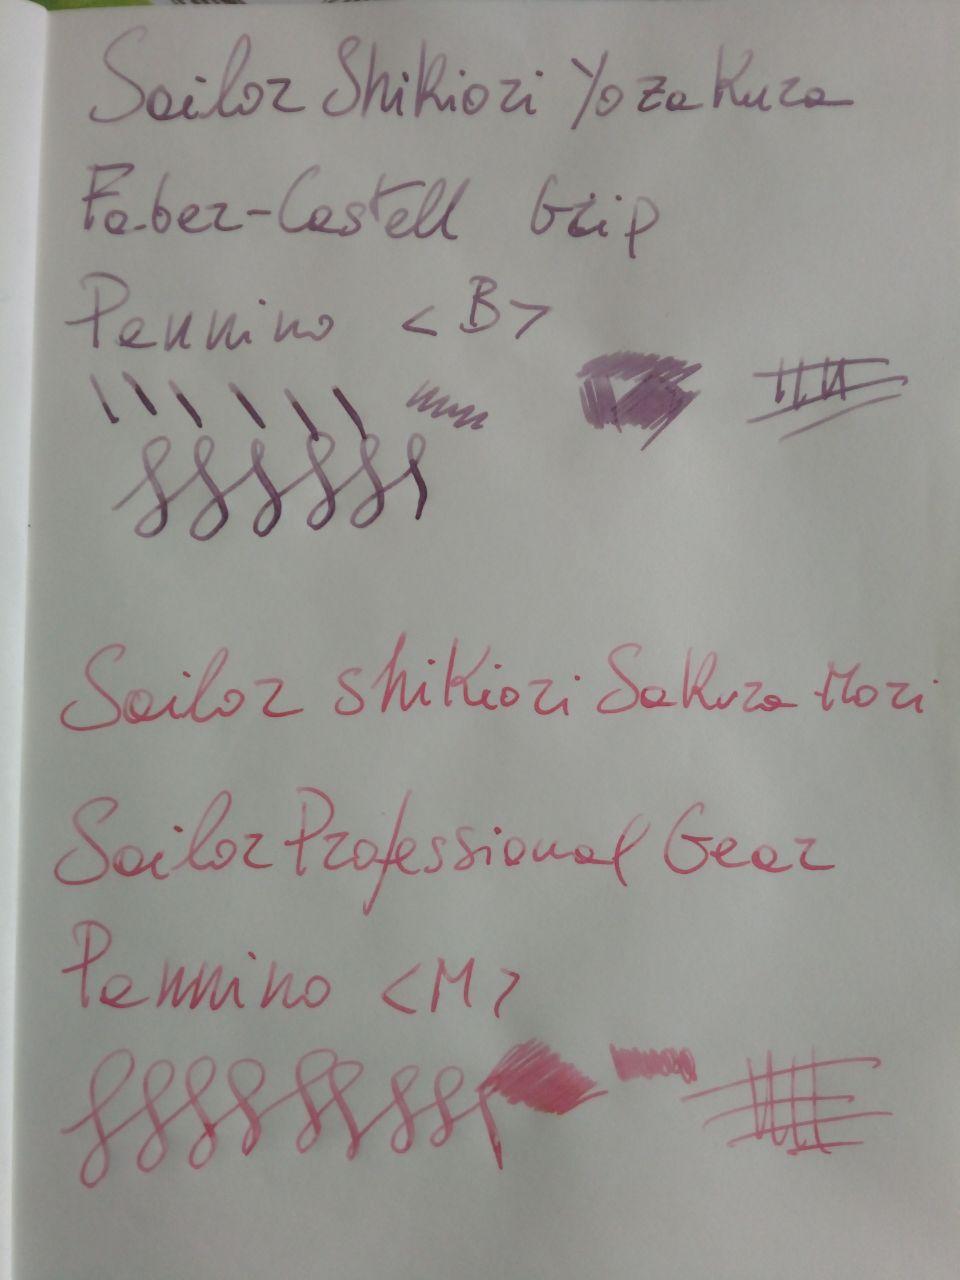 Sailor Shikiori Yozakura
Faber-Castell Grip
Pennino <B>
Sailor Shikiori Sakura Mori
Sailor Professional Gear
Pennino <M>